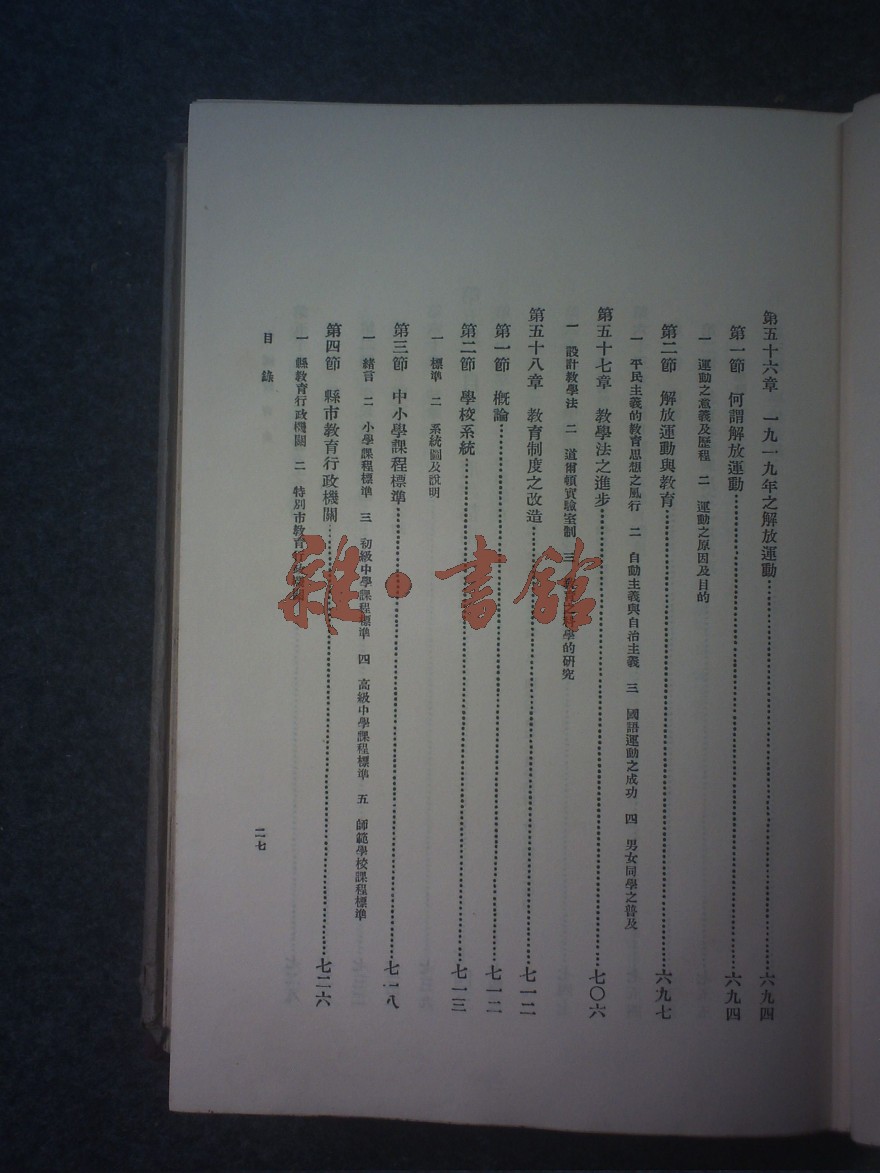 第五十六章　一九一九年之解放運動……六九四
第一節　何謂解放運動……六九四
一　運動之意義及歷程　二　運動之原因及目的
第二節　解放運動與教育……六九七
一　平民主義的教育思想之風行　二　自動主義與自治主義　三　國語運動之成功　四　男女同學之普及
第五十七章　教學法之進步……七〇六
一　設計教學法　二　道爾頓實驗室制　三　教育之科學的研究
第五十八章　教育制度之改造……七一二
第一節　概論……七一二
第二節　學校系統……七一三
一　標準　二　系統圖及說明
第三節　中小學課程標準……七一八
一　緒言　二　小學課程標準　三　初級中學課程標準　四　高級中學課程標準　五　師範學校課程標準
第四節　縣市教育行政機關……七二六
一　縣教育行政機關　二　特別市教育行政機關
目錄
二七
雜·書館